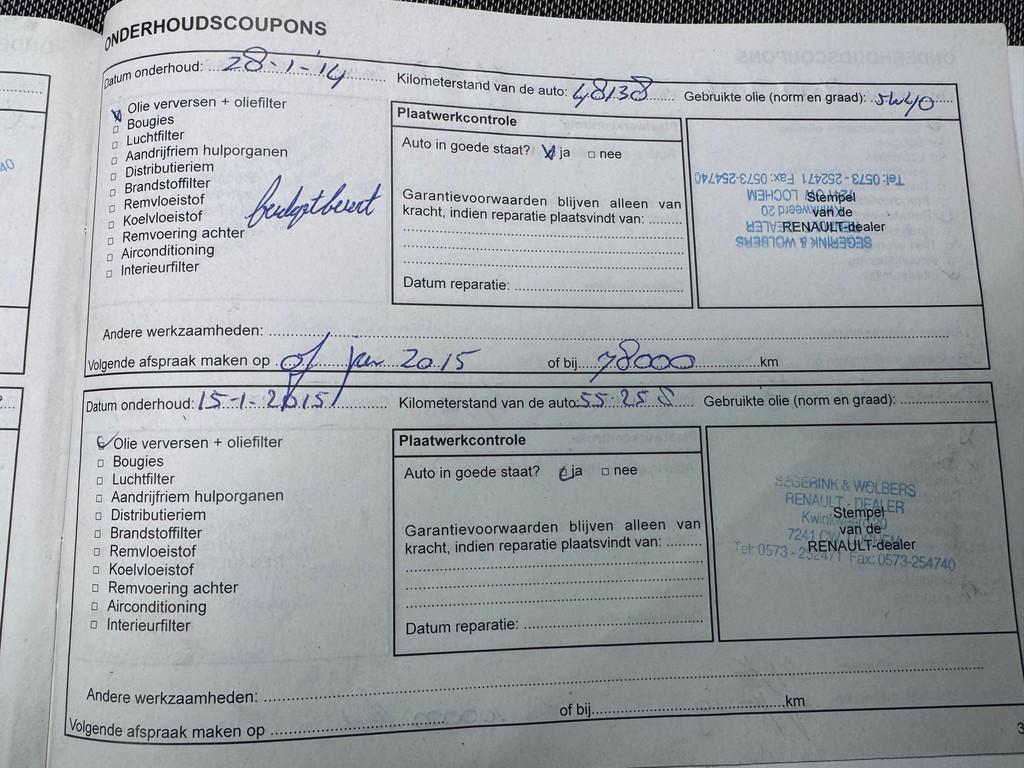 ONDERHOUDSCOUPONS
Datum onderhoud: 28-1-14 Kilometerstand van de auto: 48138 Gebruikte olie (norm en graad): 5W40
Olie verversen + oliefilter
Bougies
Luchtfilter
Aandrijfriem hulporganen
Distributieriem
Brandstoffilter
Remvloeistof
Koelvloeistof
Remvoering achter
Airconditioning
Interieurfilter
Plaatwerkcontrole
Auto in goede staat? ja nee
Garantievoorwaarden blijven alleen van
kracht, indien reparatie plaatsvindt van:
Datum reparatie:
SEGERINK & WOLBERS
Tel: 0573-252471 Fax: 0573-254740
Stempel
van de
RENAULT-dealer
Andere werkzaamheden:
Volgende afspraak maken op of jan 2015 of bij 78000 km
Datum onderhoud: 15-1-2015 Kilometerstand van de auto: 55-258 Gebruikte olie (norm en graad):
Olie verversen + oliefilter
Bougies
Luchtfilter
Aandrijfriem hulporganen
Distributieriem
Brandstoffilter
Remvloeistof
Koelvloeistof
Remvoering achter
Airconditioning
Interieurfilter
Plaatwerkcontrole
Auto in goede staat? ja nee
Garantievoorwaarden blijven alleen van
kracht, indien reparatie plaatsvindt van:
Datum reparatie:
SEGERINK & WOLBERS
RENAULT - DEALER
Tel: 0573-252471 Fax: 0573-254740
Stempel
van de
RENAULT-dealer
Andere werkzaamheden:
Volgende afspraak maken op of bij km